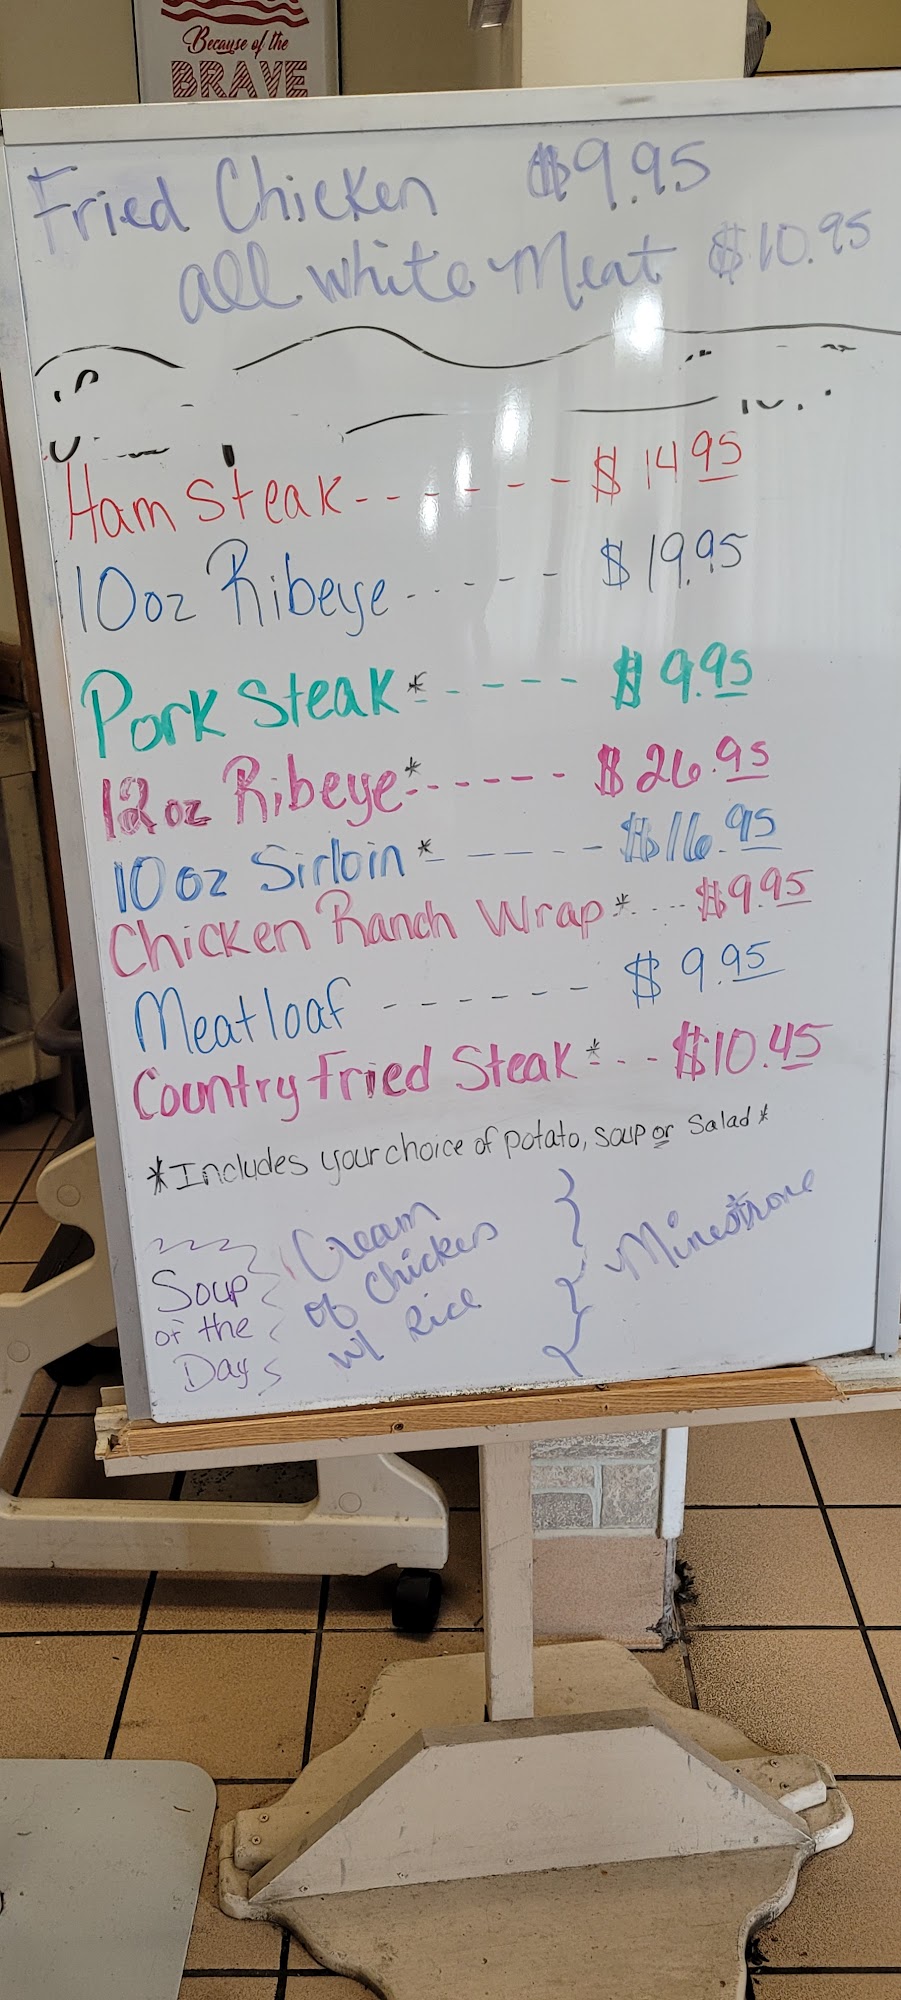 Because of the
BRAVE
Fried Chicken $9.95
all white Meat $10.95
Ham Steak------ $14.95
10oz Ribeye ----- $19.95
Pork Steak*----- $9.95
12oz Ribeye*------ $26.95
10oz Sirloin*----- $16.95
Chicken Ranch Wrap*.... $9.95
Meatloaf ------ $9.95
Country Fried Steak*--- $10.45
*Includes your choice of potato, soup or Salad*
Soup of the Day
Cream of Chicken w/ Rice
Minestrone